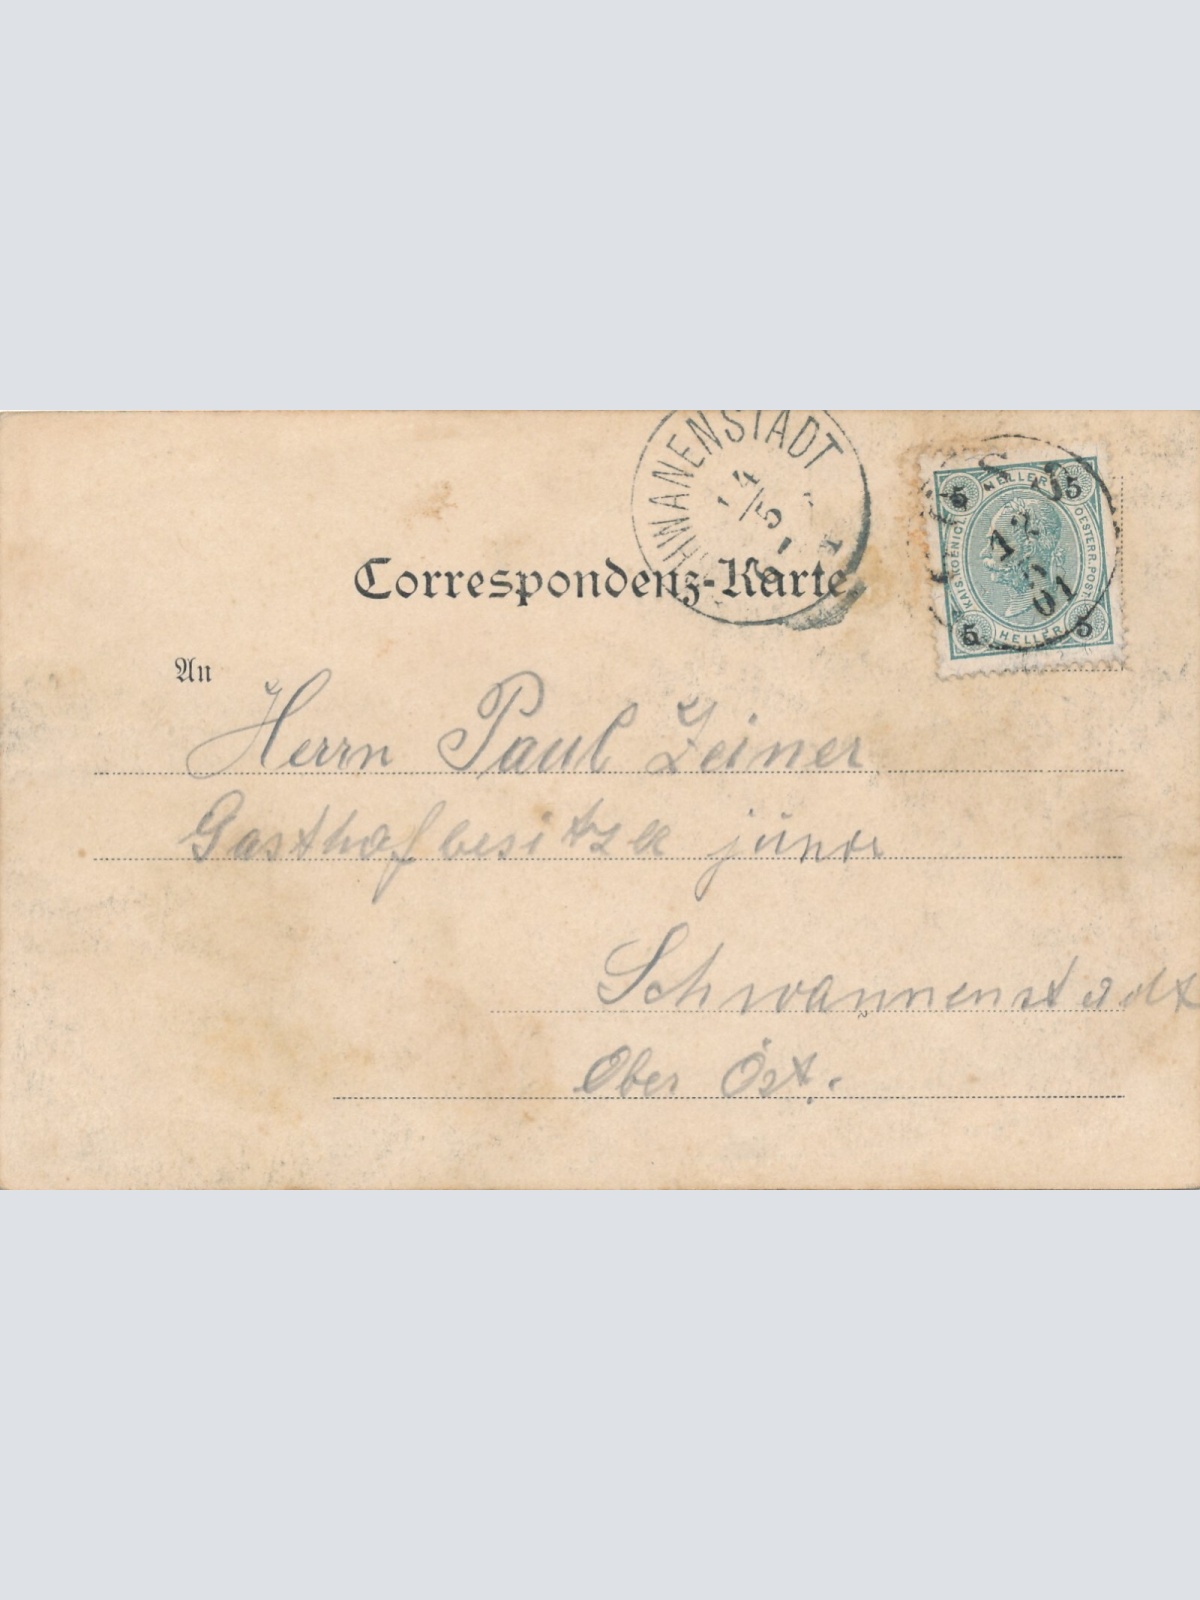 HWANENSTADT
14/5
5 HELLER 5
KAIS. KOENIGL. OESTERR. POST
12
5
01
5 HELLER 5
Correspondenz-Karte
An
Herrn Paul Zeiner
Gasthofbesitzer junior
Schwannenstadt
Ober Öst.